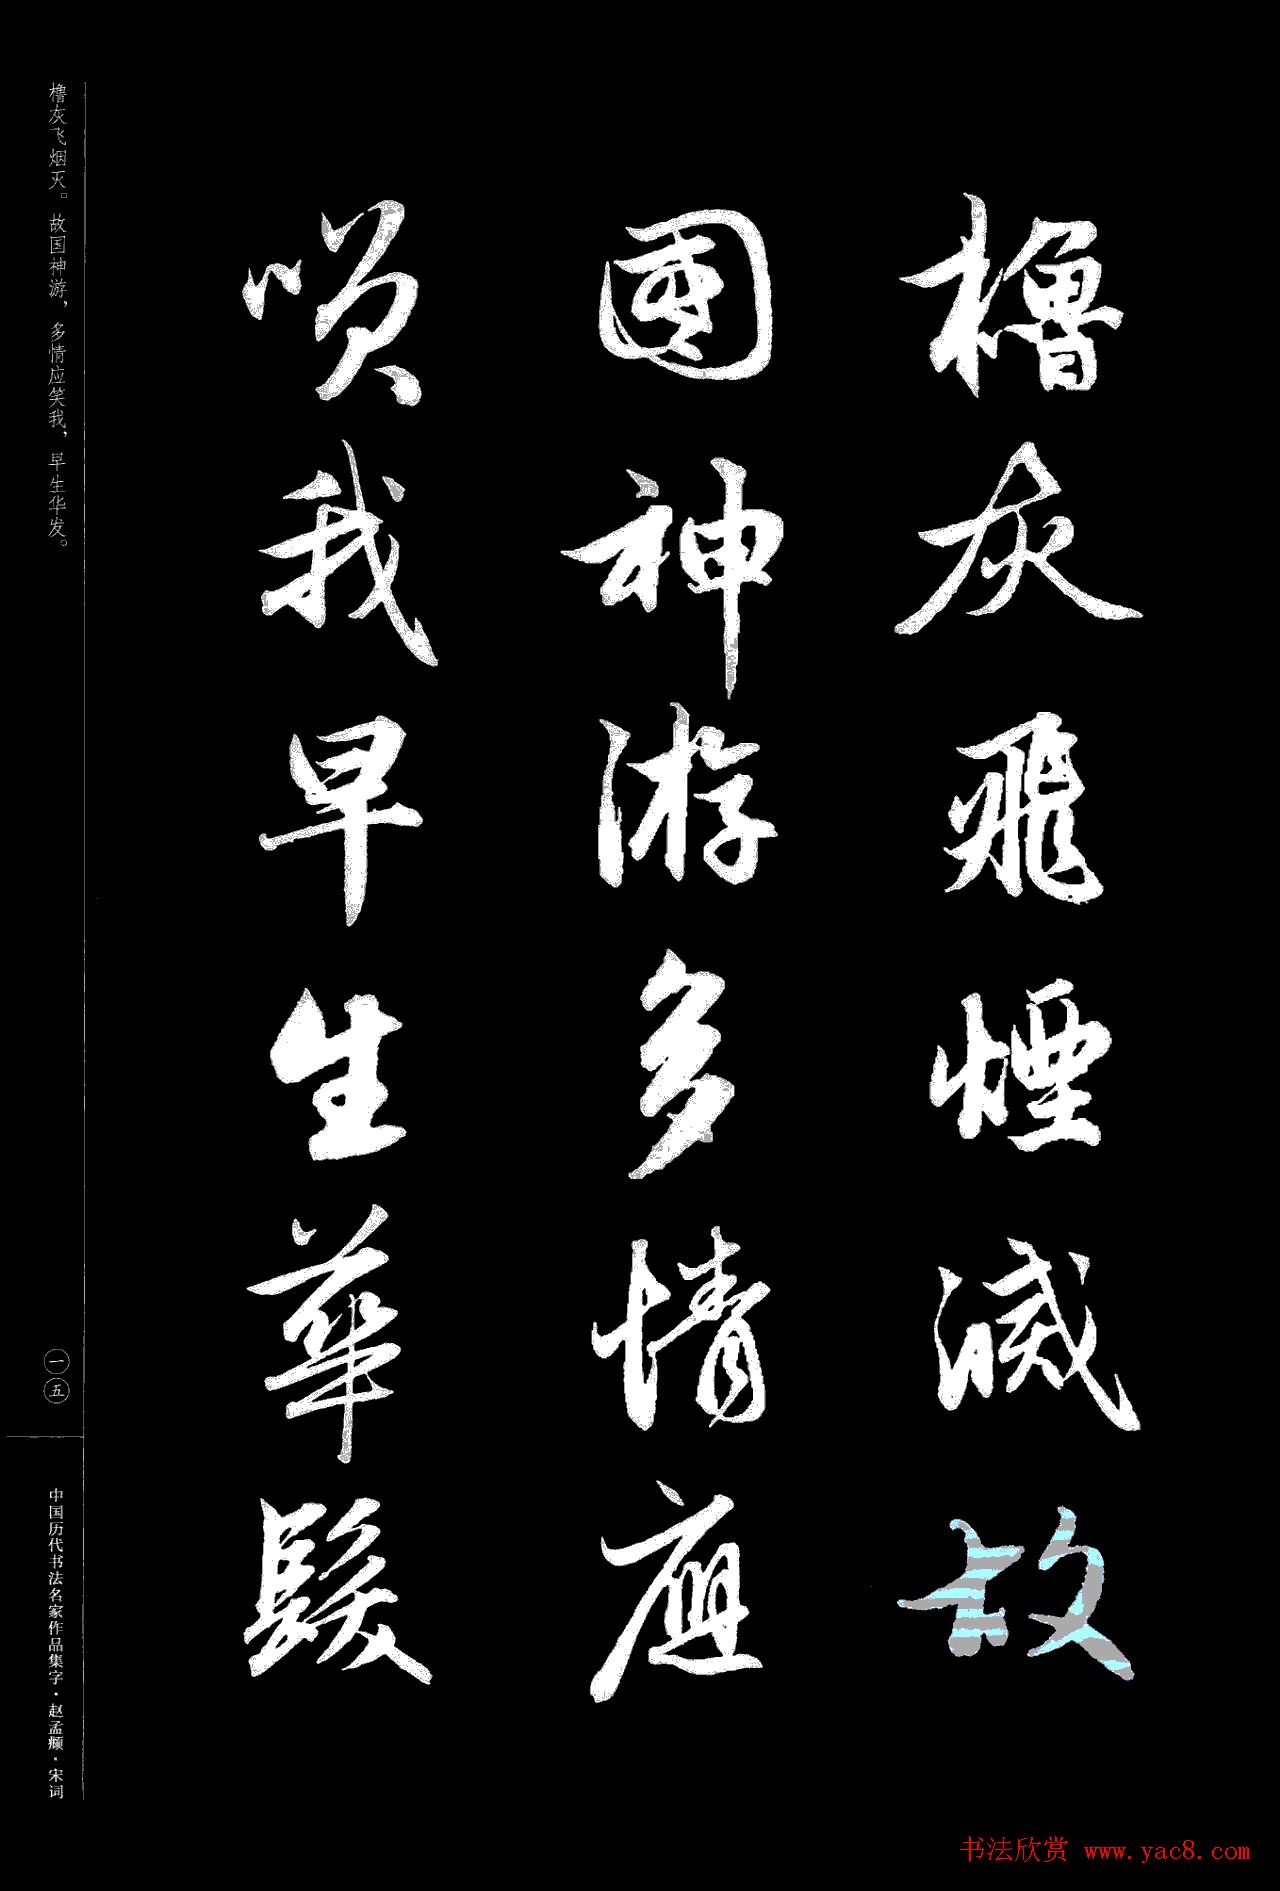 櫓灰飛煙滅故
國神游多情應
唉我早生華髮
橹灰飞烟灭。故国神游，多情应笑我，早生华发。
一五
中国历代书法名家作品集字·赵孟頫·宋词
书法欣赏 www.yac8.com